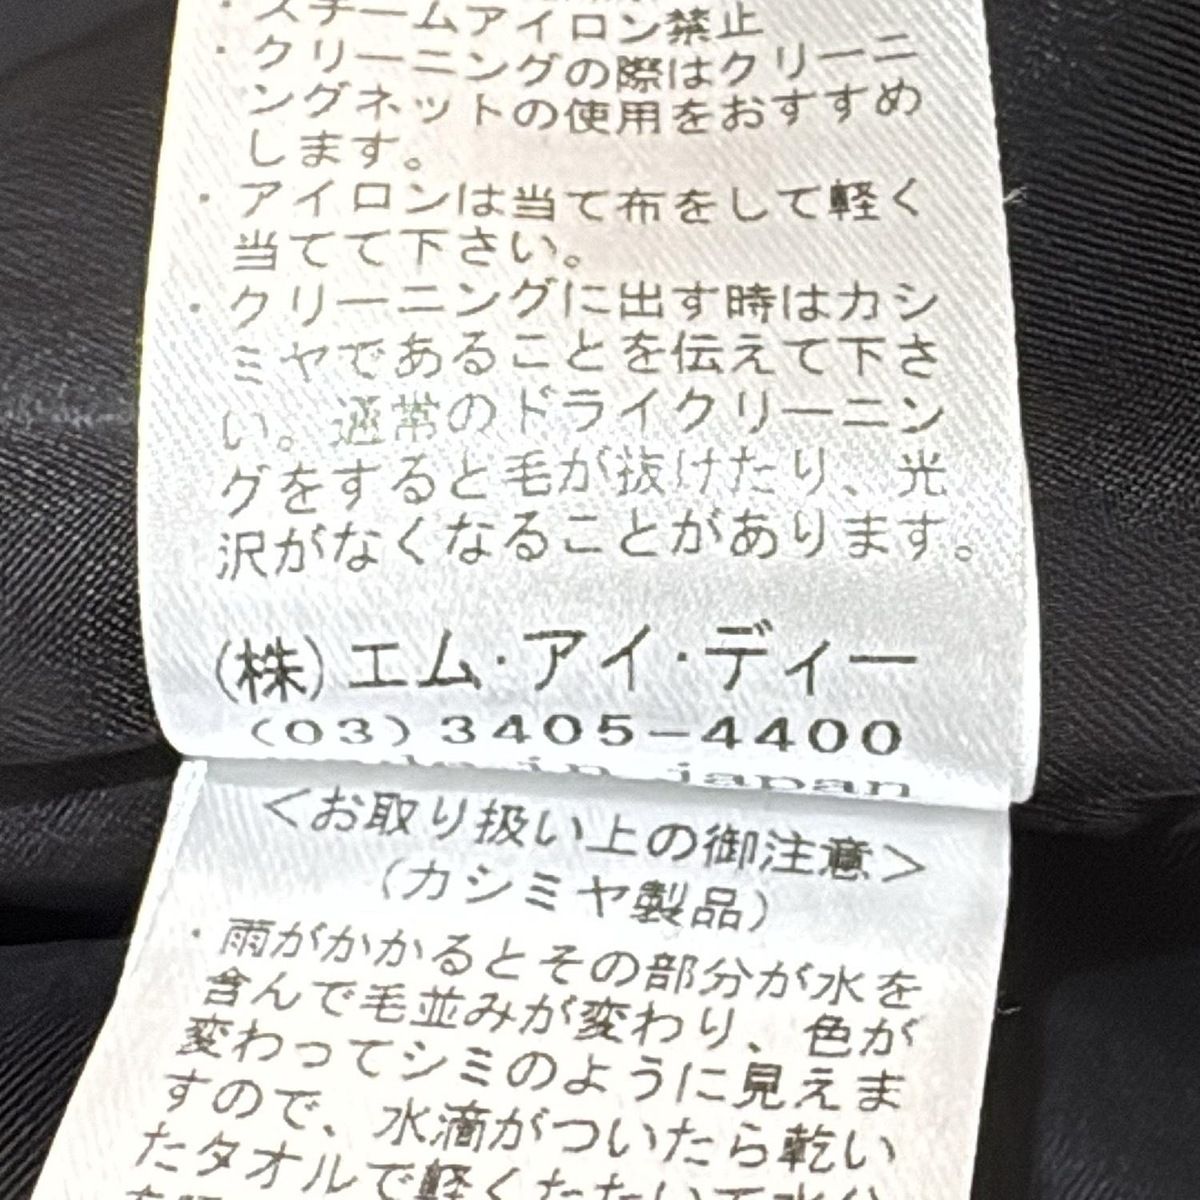 ・スチームアイロン禁止
・クリーニングの際はクリーニ
ングネットの使用をおすすめ
します。
・アイロンは当て布をして軽く
当てて下さい。
・クリーニングに出す時はカシ
ミヤであることを伝えて下さ
い。通常のドライクリーニン
グをすると毛が抜けたり、光
沢がなくなることがあります。
(株)エム・アイ・ディー
(03)3405-4400
made in japan
<お取り扱い上の御注意>
(カシミヤ製品)
・雨がかかるとその部分が水を
含んで毛並みが変わり、色が
変わってシミのように見えま
すので、水滴がついたら乾い
たタオルで軽くたたいて水分